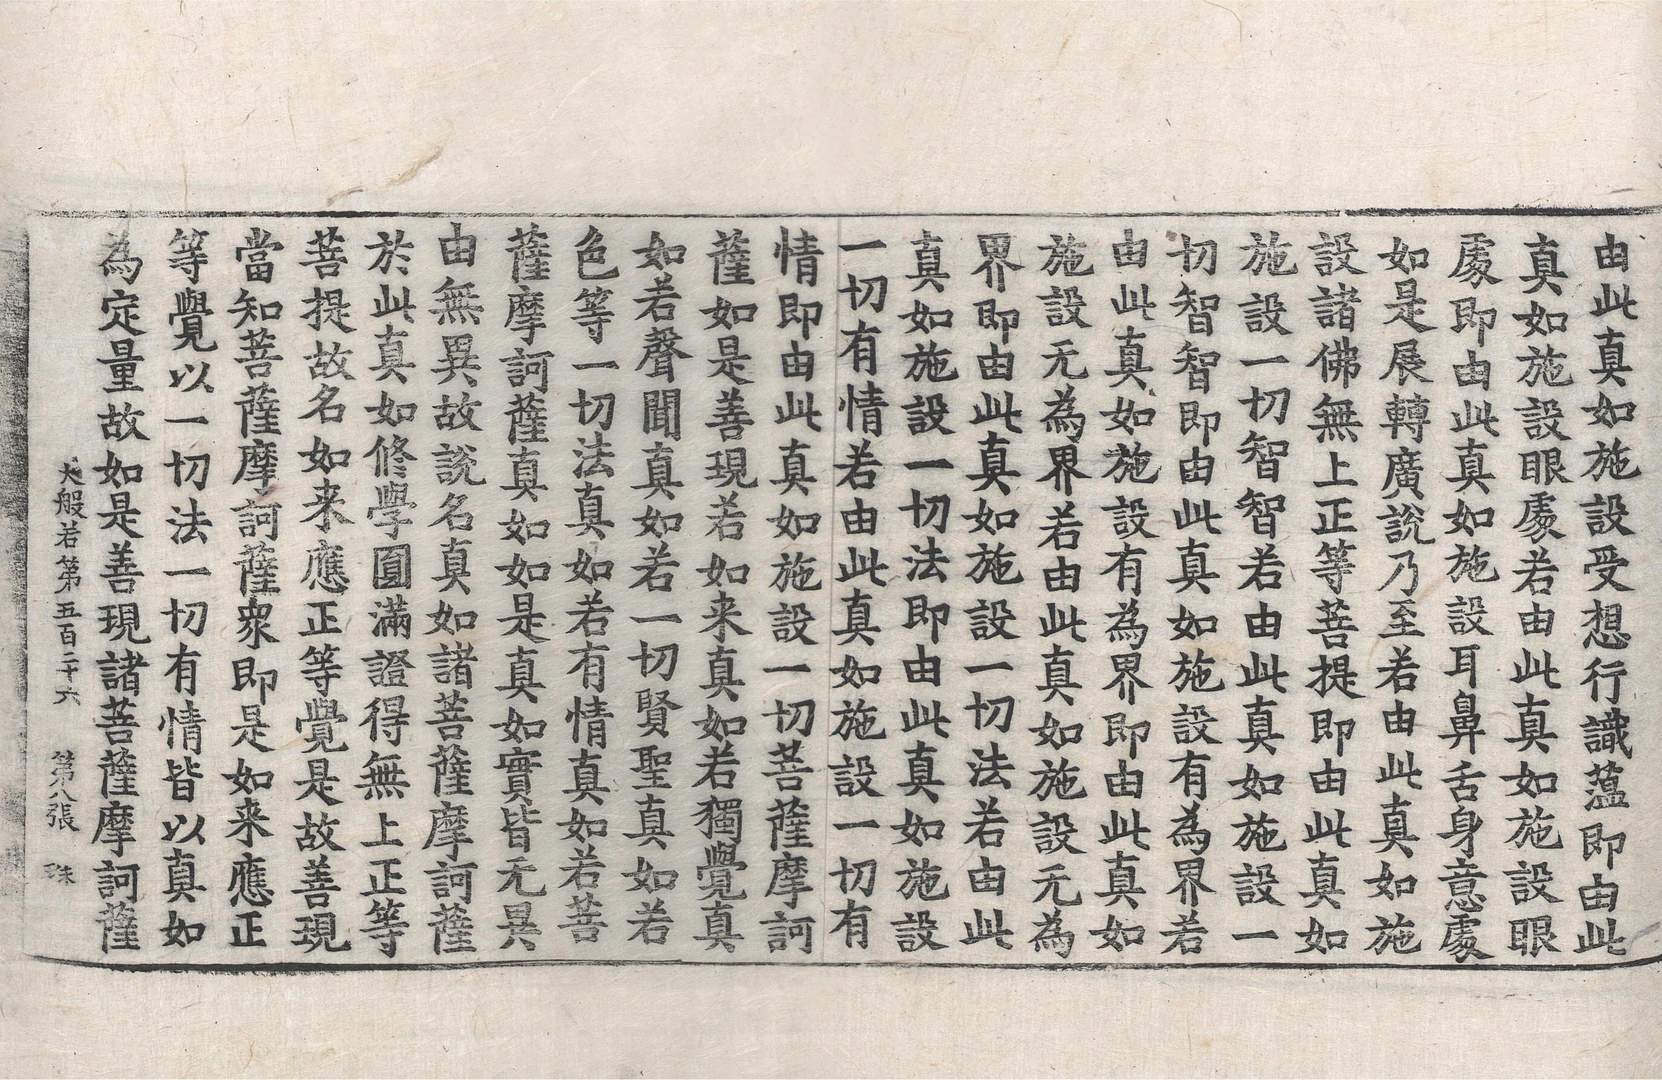 由此真如施設受想行識蘊即由此
真如施設眼處若由此真如施設眼
處即由此真如施設耳鼻舌身意處
如是展轉廣說乃至若由此真如施
設諸佛無上正等菩提即由此真如
施設一切智智若由此真如施設一
切智智即由此真如施設有為界若
由此真如施設有為界即由此真如
施設无為界若由此真如施設无為
界即由此真如施設一切法若由此
真如施設一切法即由此真如施設
一切有情若由此真如施設一切有
情即由此真如施設一切菩薩摩訶
薩如是善現若如来真如若獨覺真
如若聲聞真如若一切賢聖真如若
色等一切法真如若有情真如若菩
薩摩訶薩真如如是真如實皆无異
由無異故說名真如諸菩薩摩訶薩
於此真如修學圓滿證得無上正等
菩提故名如来應正等覺是故善現
當知菩薩摩訶薩衆即是如来應正
等覺以一切法一切有情皆以真如
為定量故如是善現諸菩薩摩訶薩
大般若第五百二十六 第八張 珠